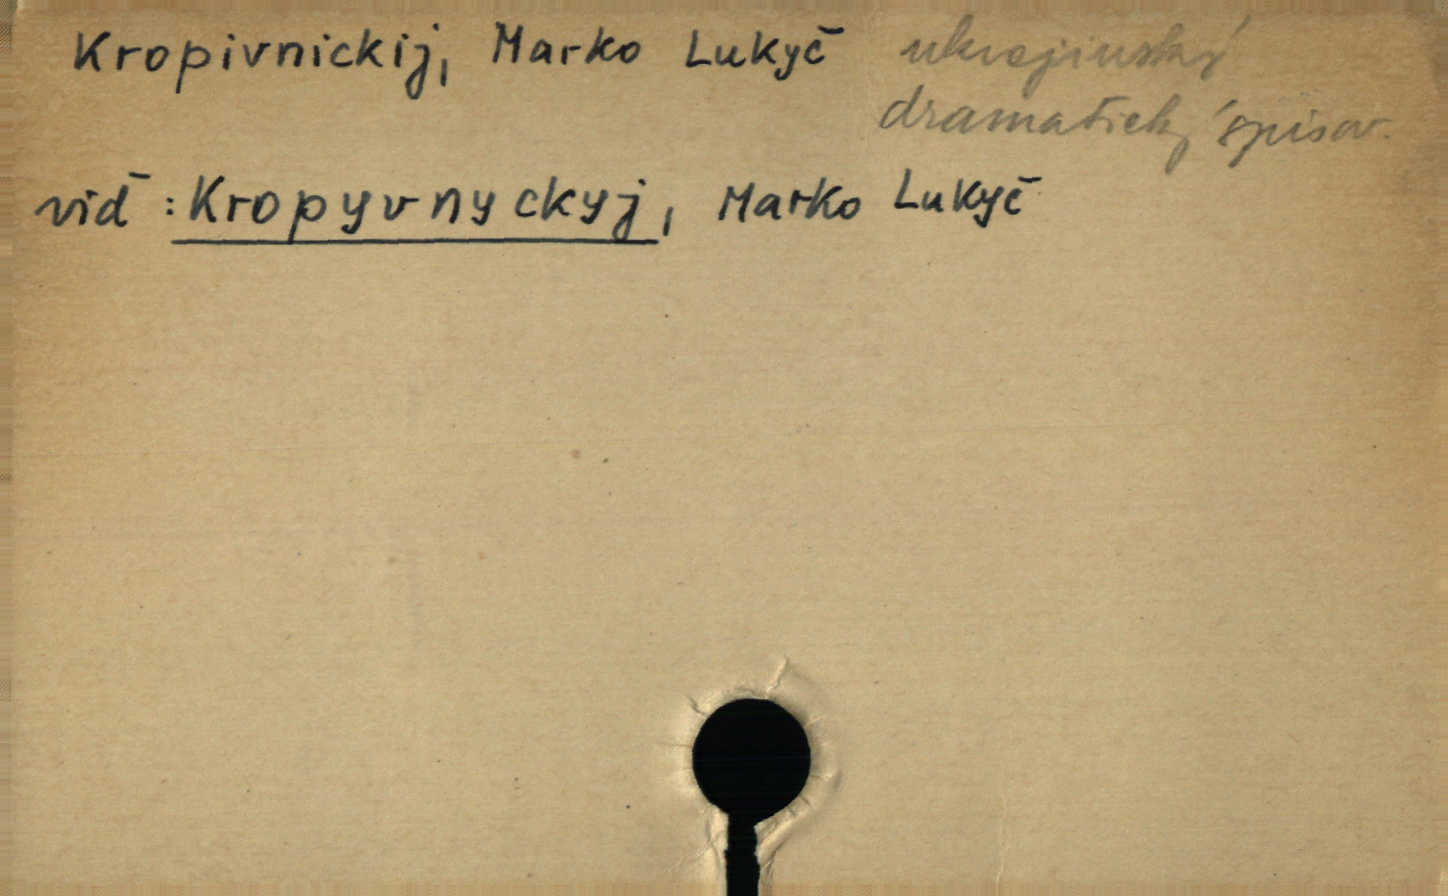 Kropivnickij, Marko Lukyč ukrajinský
dramatický spisov.
viď: Kropyvnyckyj, Marko Lukyč